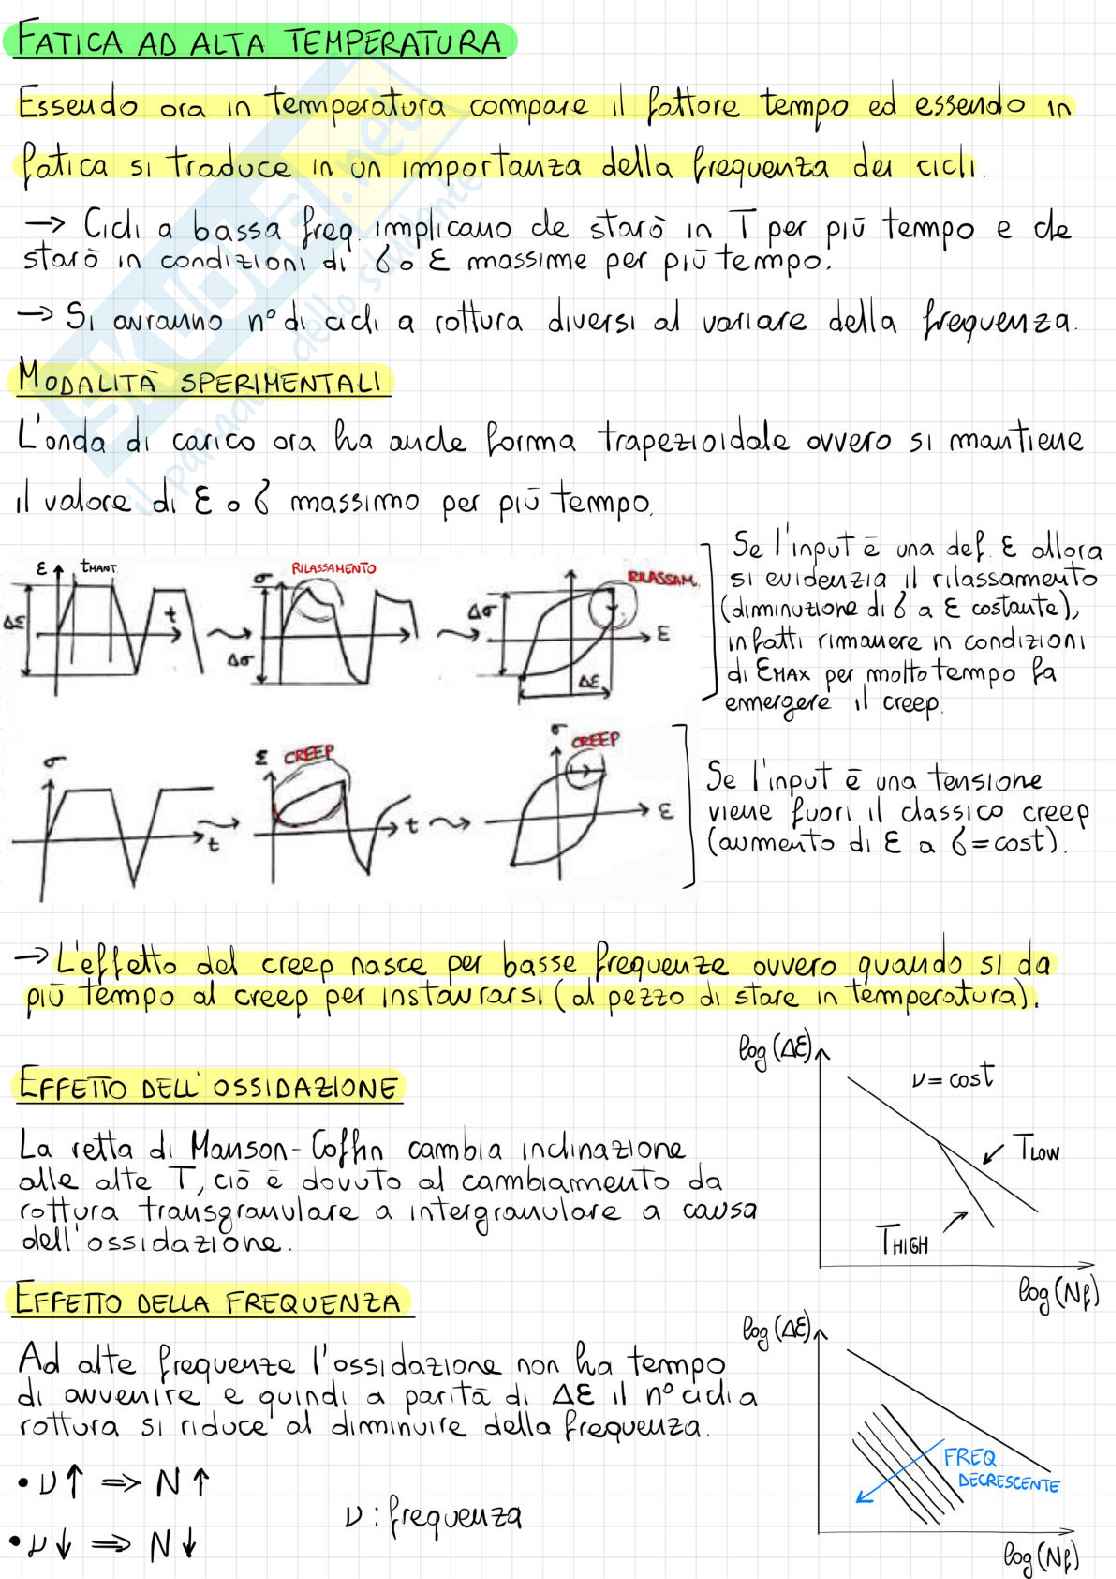 FATICA AD ALTA TEMPERATURA
Essendo ora in temperatura compare il fattore tempo ed essendo in
fatica si traduce in un importanza della frequenza dei cicli.
→ Cicli a bassa freq. implicano che starò in T per più tempo e che
starò in condizioni di σ o ε massime per più tempo.
→ Si avranno n° di cicli a rottura diversi al variare della frequenza.
MODALITÀ SPERIMENTALI
L'onda di carico ora ha anche forma trapezioidale ovvero si mantiene
il valore di ε o σ massimo per più tempo.
ε tMANT. Δε t
σ RILASSAMENTO Δσ
RILASSAM. Δσ ε Δε
Se l'input è una def. ε allora
si evidenzia il rilassamento
(diminuzione di σ a ε costante),
infatti rimanere in condizioni
di εMAX per molto tempo fa
emergere il creep.
σ t
ε CREEP t
σ CREEP ε
Se l'input è una tensione
viene fuori il classico creep
(aumento di ε a σ=cost).
→ L'effetto del creep nasce per basse frequenze ovvero quando si da
più tempo al creep per instaurarsi (al pezzo di stare in temperatura).
EFFETTO DELL'OSSIDAZIONE
La retta di Manson-Coffin cambia inclinazione
alle alte T, ciò è dovuto al cambiamento da
rottura transgranulare a intergranulare a causa
dell'ossidazione.
log(Δε)
ν=cost
TLOW
THIGH
log(Nf)
EFFETTO DELLA FREQUENZA
Ad alte frequenze l'ossidazione non ha tempo
di avvenire e quindi a parità di Δε il n° cicli a
rottura si riduce al diminuire della frequenza.
• ν↑ ⇒ N↑
• ν↓ ⇒ N↓
ν: frequenza
log(Δε)
FREQ
DECRESCENTE
log(Nf)
SKUOLA.net